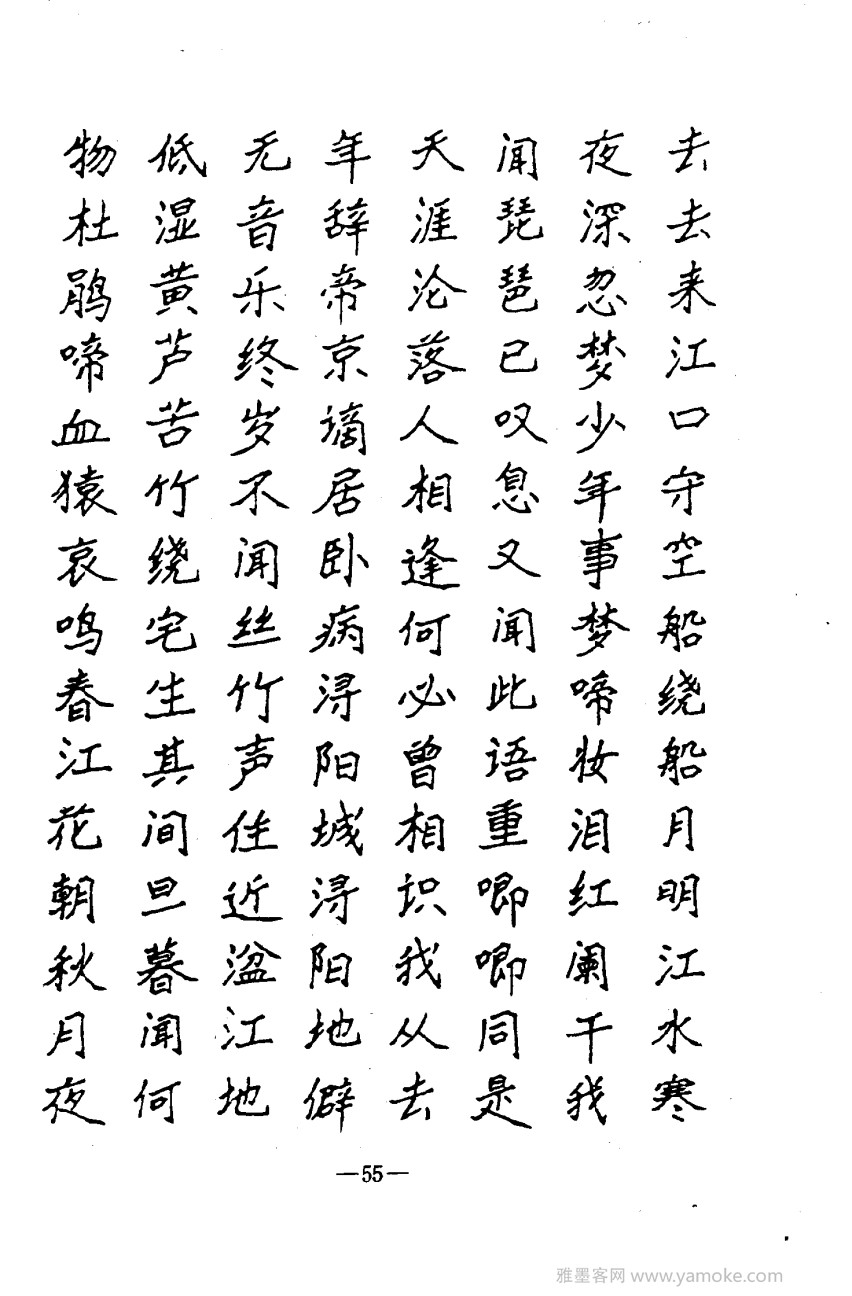 去去来江口守空船绕船月明江水寒
夜深忽梦少年事梦啼妆泪红阑干我
闻琵琶已叹息又闻此语重唧唧同是
天涯沦落人相逢何必曾相识我从去
年辞帝京谪居卧病浔阳城浔阳地僻
无音乐终岁不闻丝竹声住近湓江地
低湿黄芦苦竹绕宅生其间旦暮闻何
物杜鹃啼血猿哀鸣春江花朝秋月夜
—55—
雅墨客网 www.yamoke.com